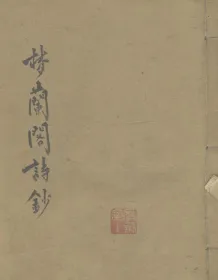 梦蘭閣詩鈔